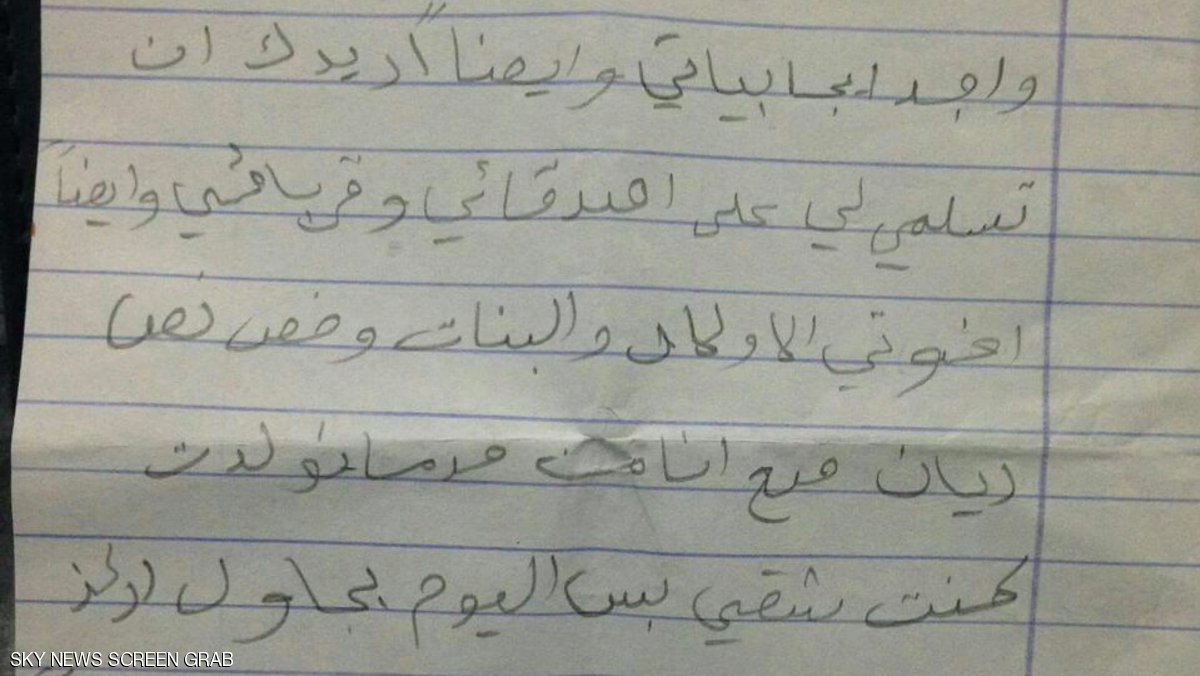 واجد ايجابياتي وايضاً اريدك ان
تسلمي لي على اصدقائي وقرباتي وايضاً
اخوتي الاولاد والبنات وخص نص
ريان صح انا من يوم ما تولدت
كنت شقي بس اليوم بحاول اركز
SKY NEWS SCREEN GRAB